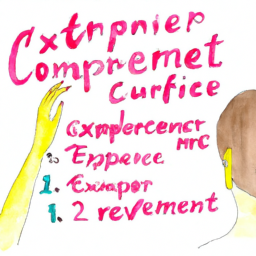 Cxtrpnier
Compremet
Curfice
Cxmpercencr
mrc
Eppaee
1. Ewapor
1. 2 revement